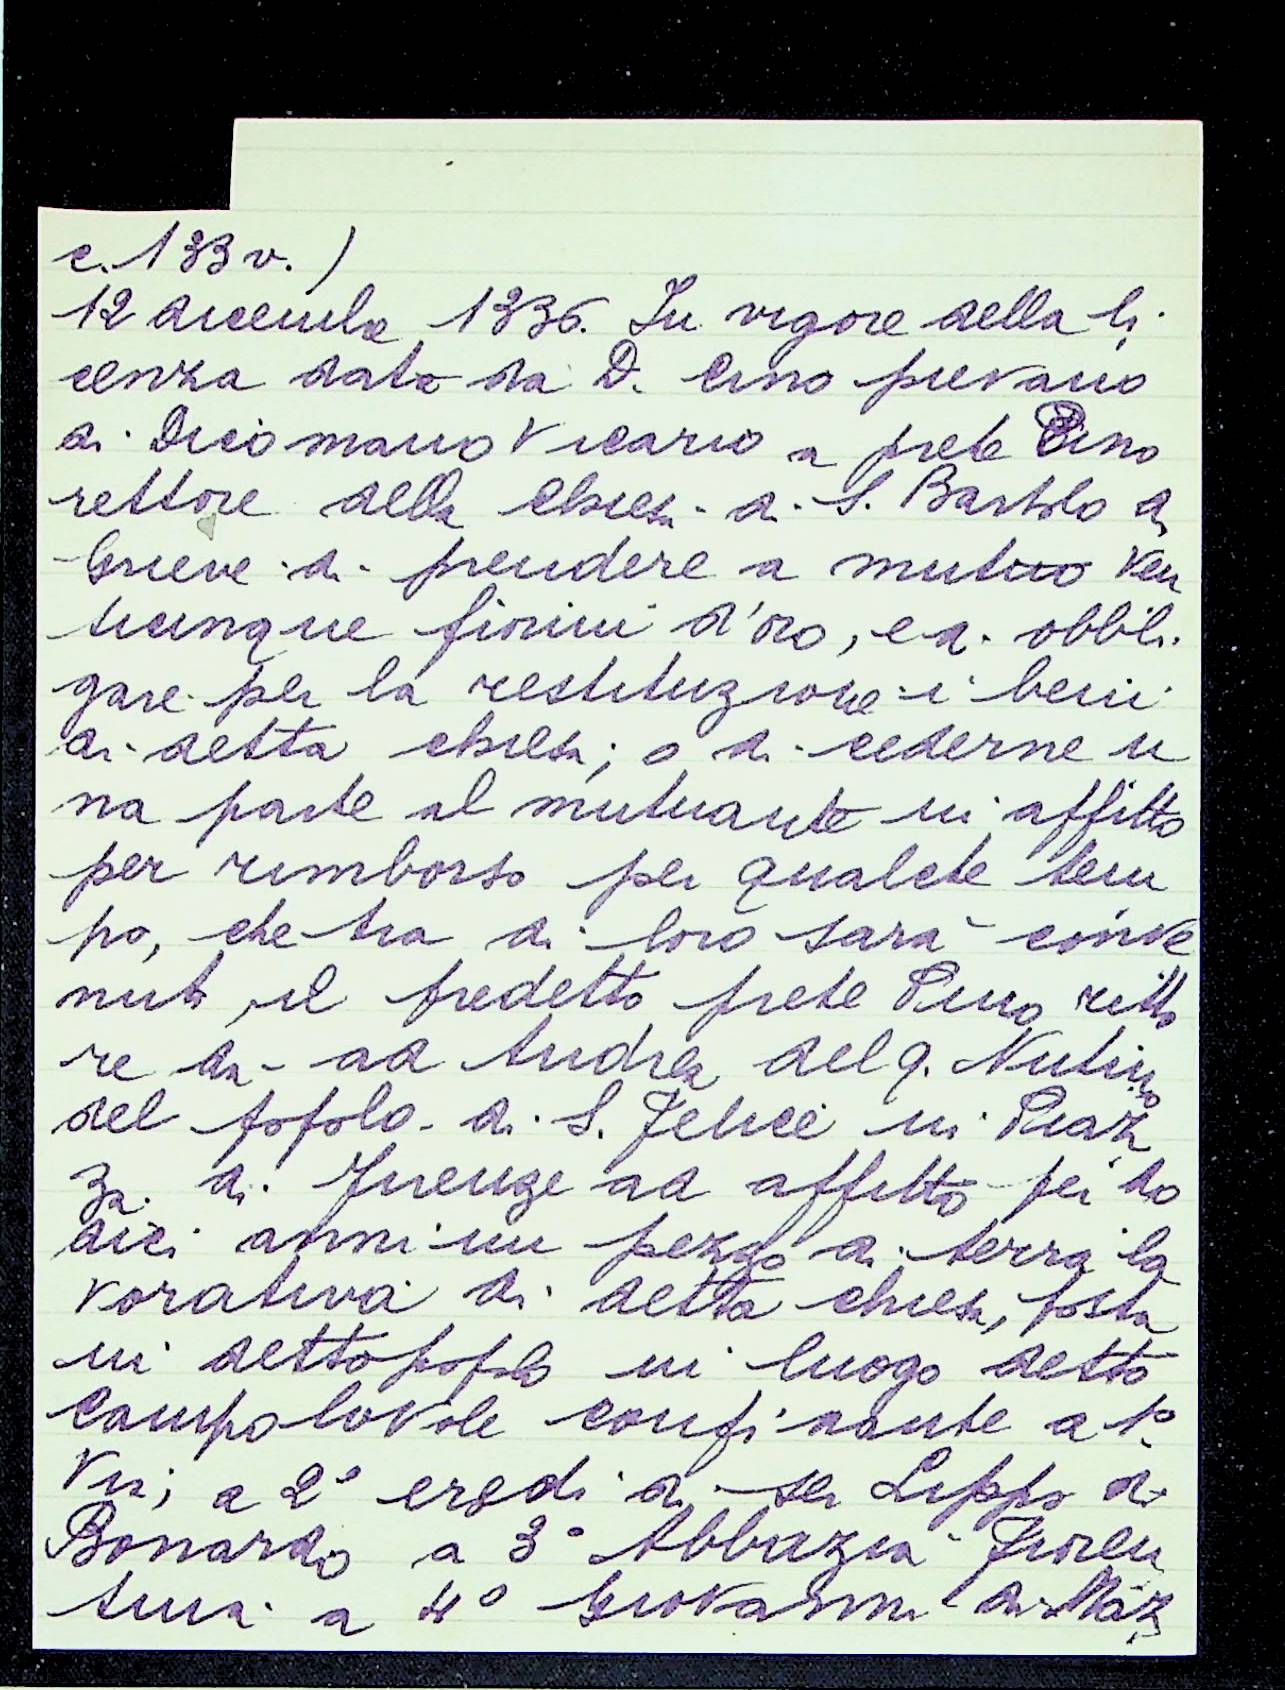 c. 133 v. )
12 dicembre 1336. In vigore della li
cenza data da D. Cino pievano
di Dicomano Vicario a prete Pino
rettore della chiesa di S. Bartolo di
Grieve di prendere a mutuo ven
ticinque fiorini d'oro, e di obbli
gare per la restituzione i beni
di detta chiesa; o di cederne u
na parte al mutuante in affitto
per rimborso per qualche tem
po, che tra di loro sarà conve
nuto, il predetto prete Pino retto
re da ad Andrea del q. Nutino
del popolo di S. Felice in Piaz
za di Firenze ad affitto per do
dici anni un pezzo di terra la
vorativa di detta chiesa, posta
in detto popolo in luogo detto
Campolovole confinante a 1°
via; a 2° eredi di ser Lippo di
Bonardo a 3° Abbazia Fioren
tina a 4° Giovanni di Maz